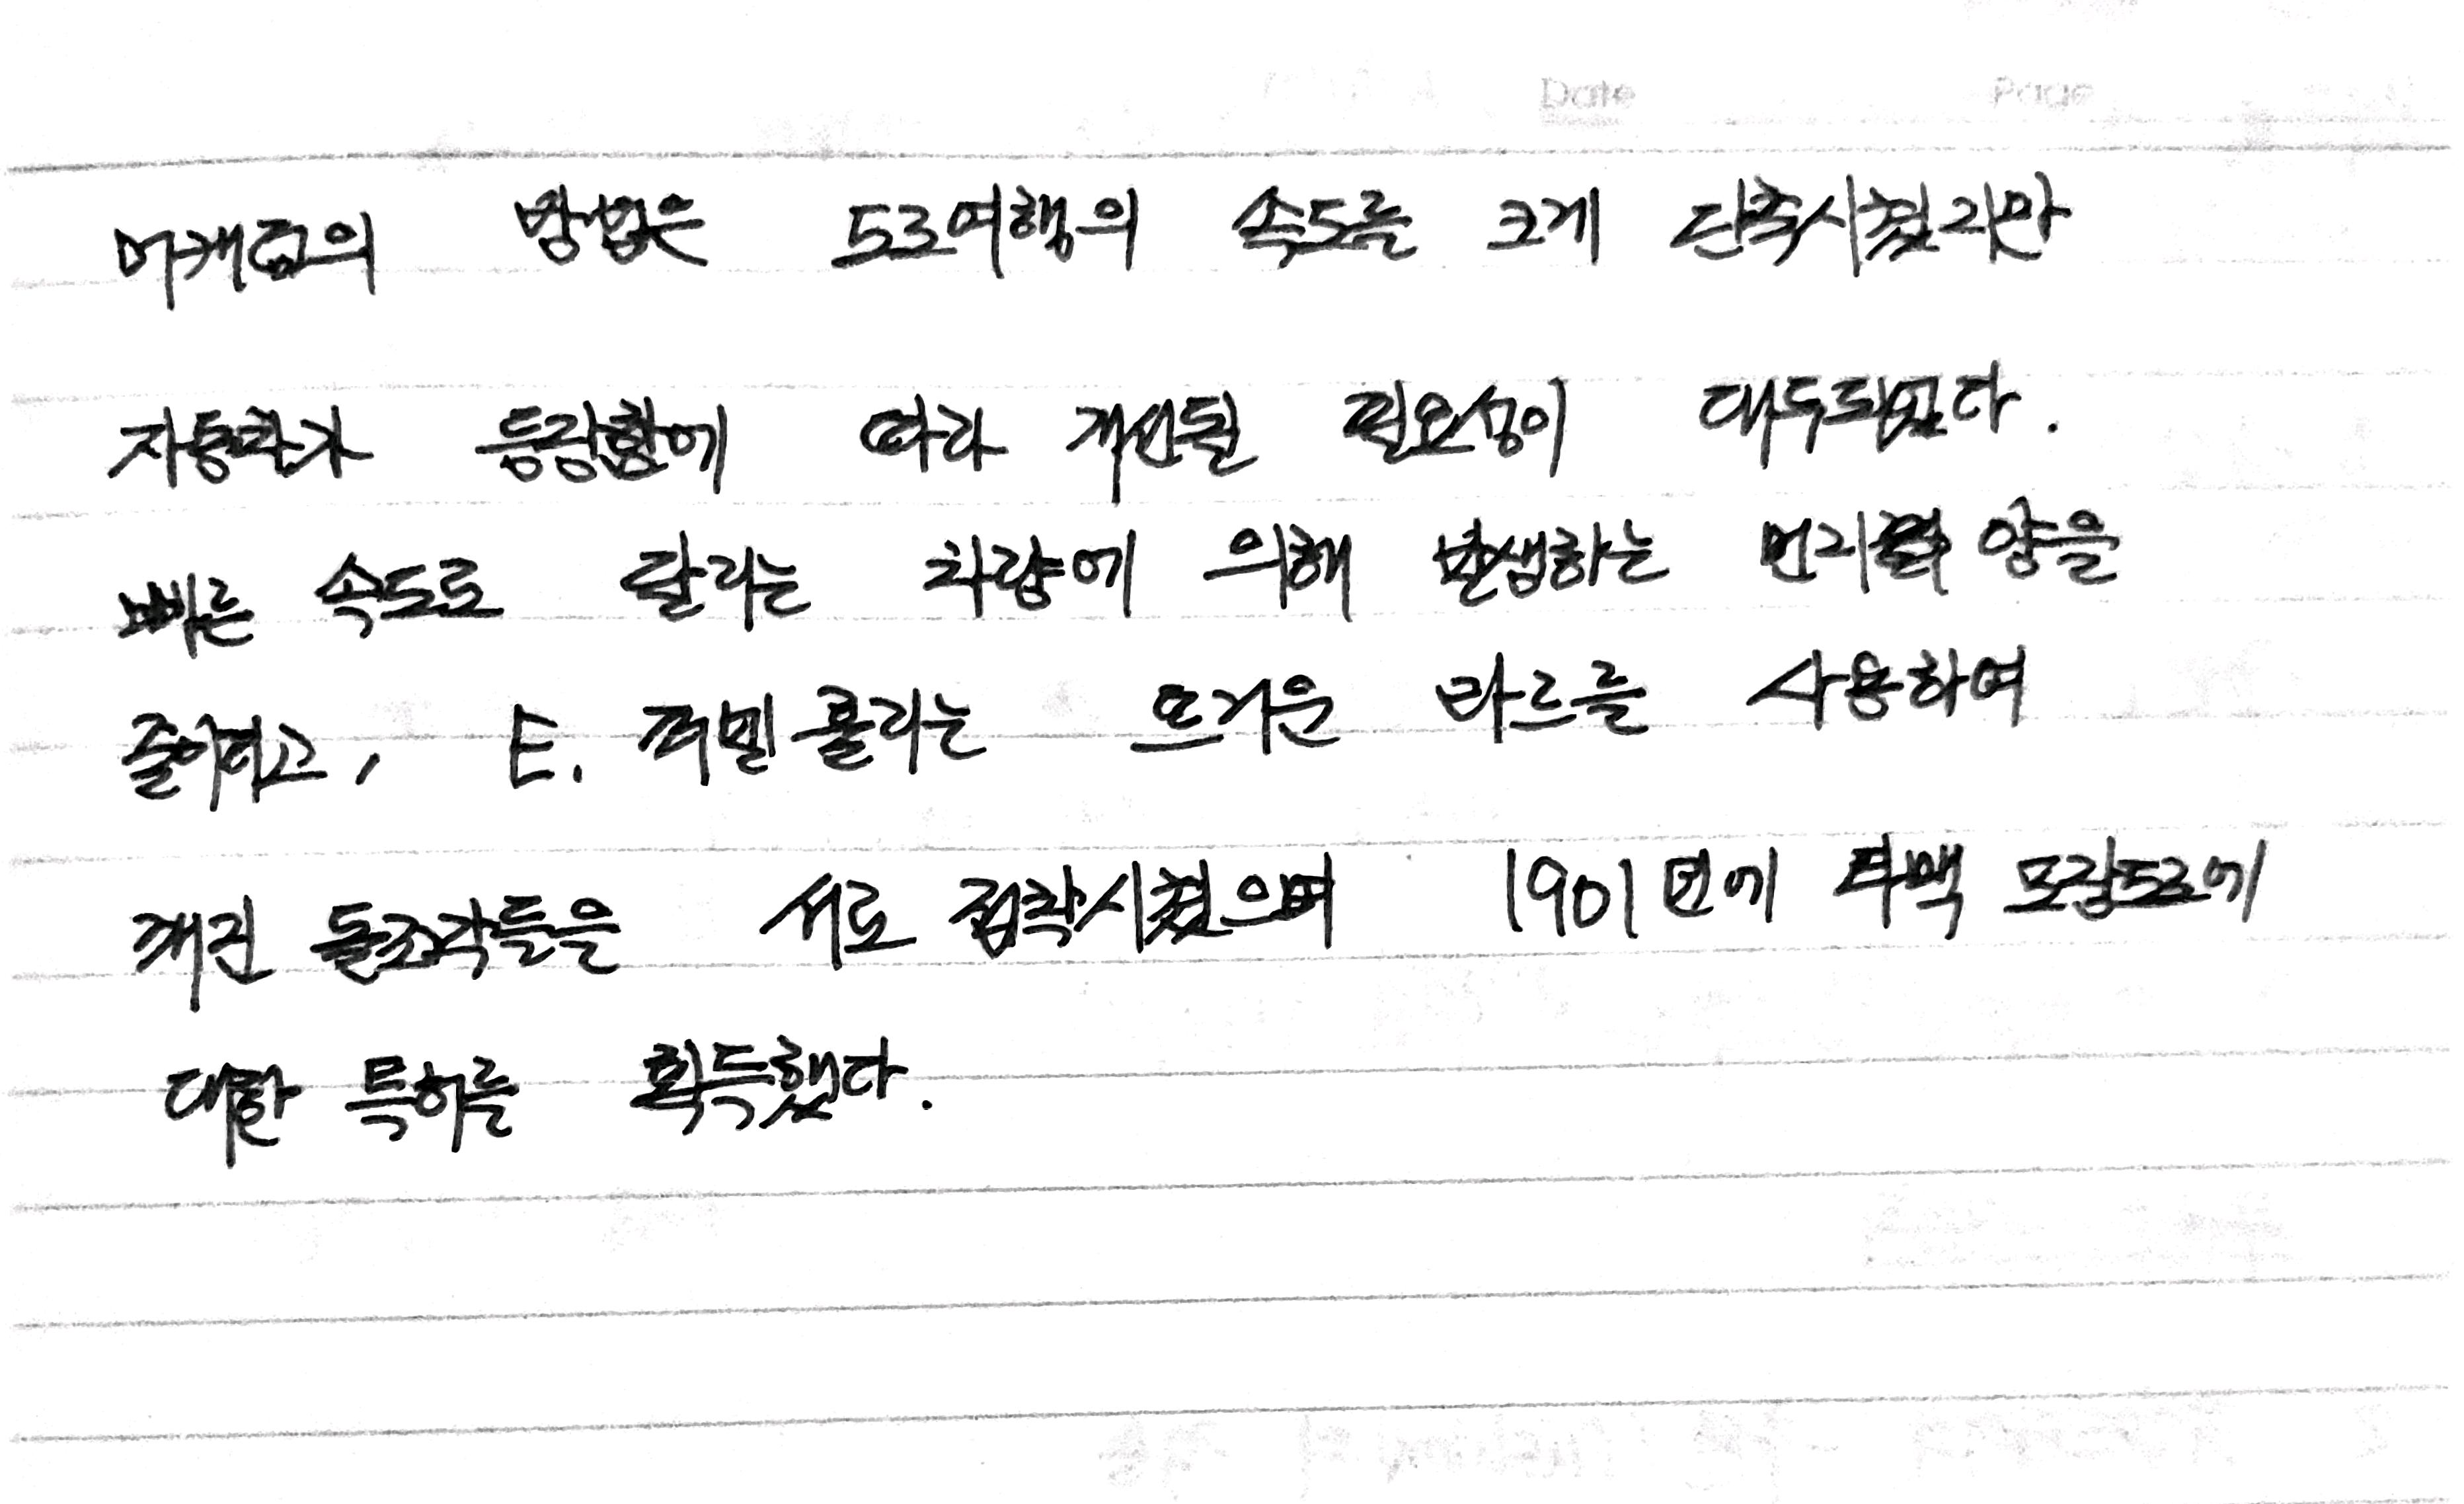 Date Page
머캐덤의 방법은 도로여행의 속도를 크게 단축시켰지만
자동차가 등장함에 따라 개선될 필요성이 대두되었다.
빠른 속도로 달리는 차량에 의해 발생하는 먼지의 양을
줄이려고, E. 퍼넬 콜리는 뜨거운 타르를 사용하여
깨진 돌조각들을 서로 접착시켰으며 1901년에 타맥 포장도로에
대한 특허를 획득했다.